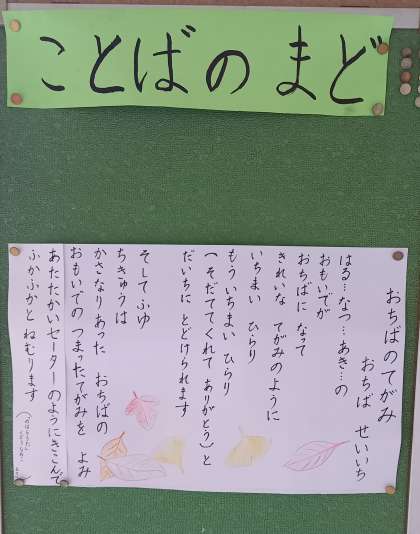 ことばの まど
おちばのてがみ
おちば せいいち
はる…なつ…あき…の
おもいでが
おちばに なって
きれいな てがみのように
いちまい ひらり
もう いちまい ひらり
(そだててくれて ありがとう)と
だいちに とどけられます
そして ふゆ
ちきゅうは
かさなりあった おちばの
おもいでの つまったてがみを よみ
あたたかいセーターのようにきこんで
ふかふかと ねむります